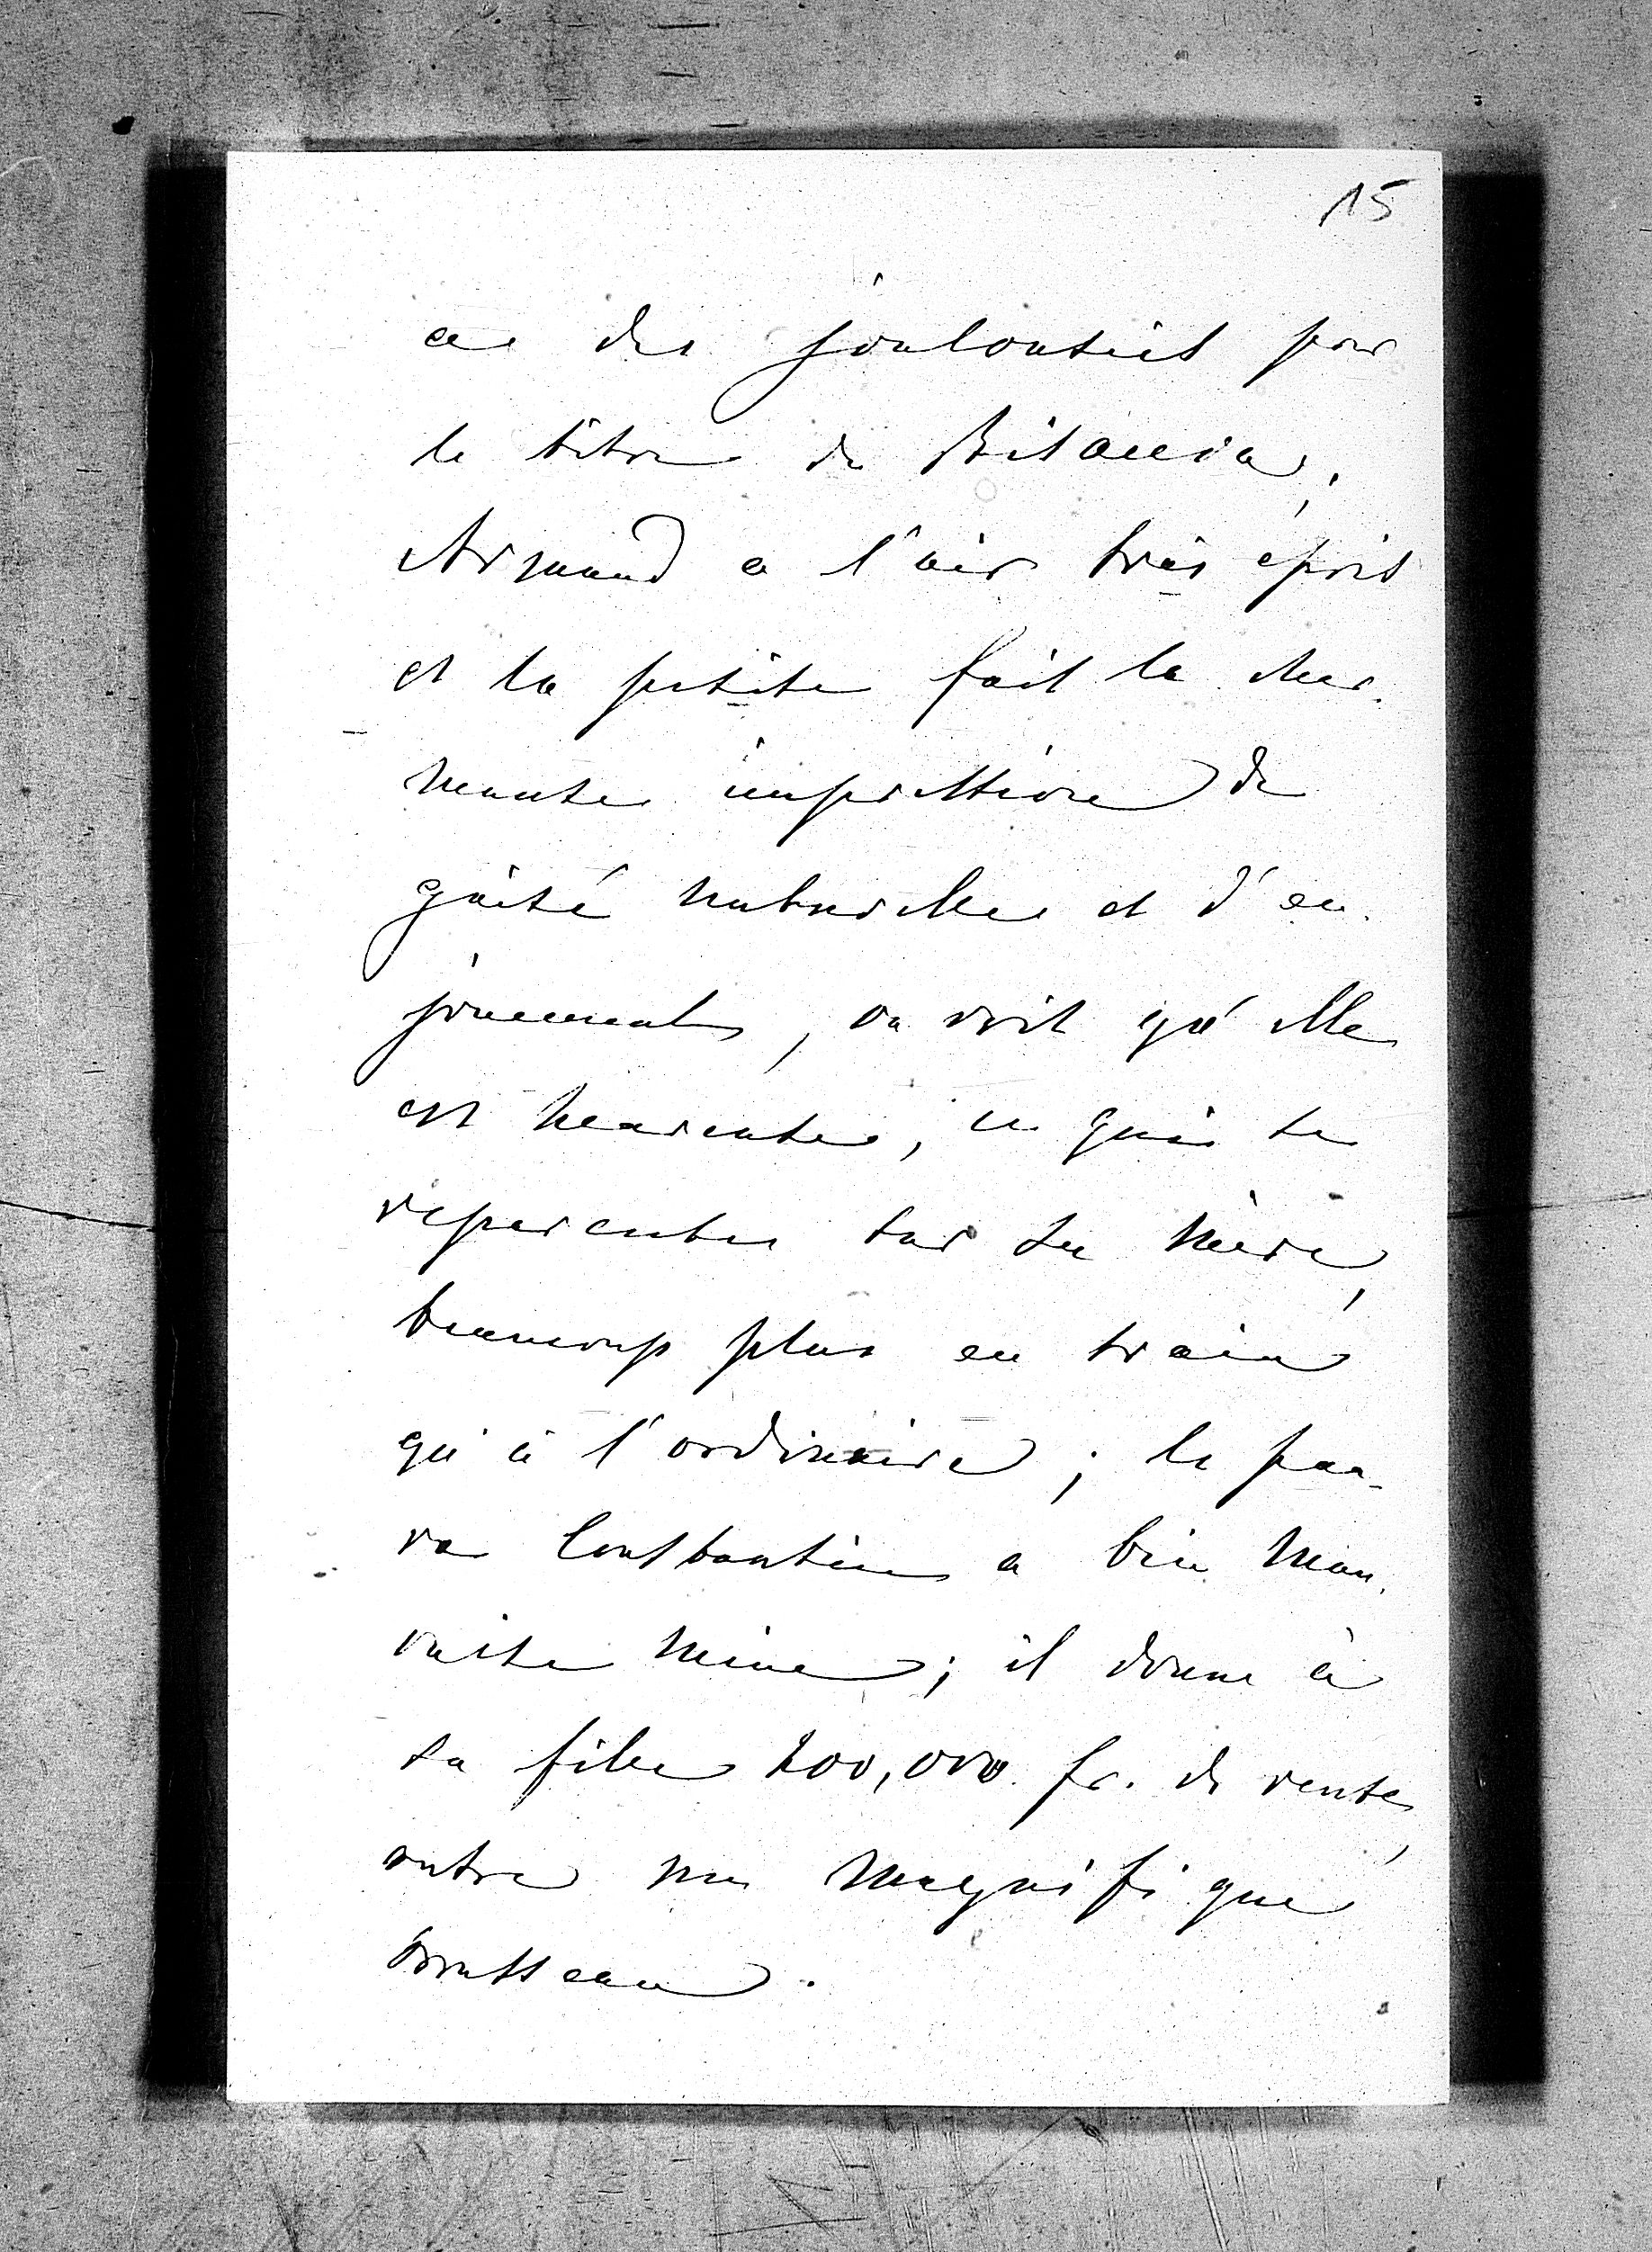 15
ce des jalousies pour
le titre de Bisaccia,
Armand a l'air très épris
et la petite fait la char-
mante impression de
gaité naturelle et d'en-
jouement, on voit qu'elle
est heureuse, ce qui se
repercute sur sa mère,
beaucoup plus en train
qu'à l'ordinaire ; le pau-
vre Constantin a bien mau-
vaise mine ; il donne à
sa fille 200,000 fr. de rente,
outre un magnifique
trousseau.